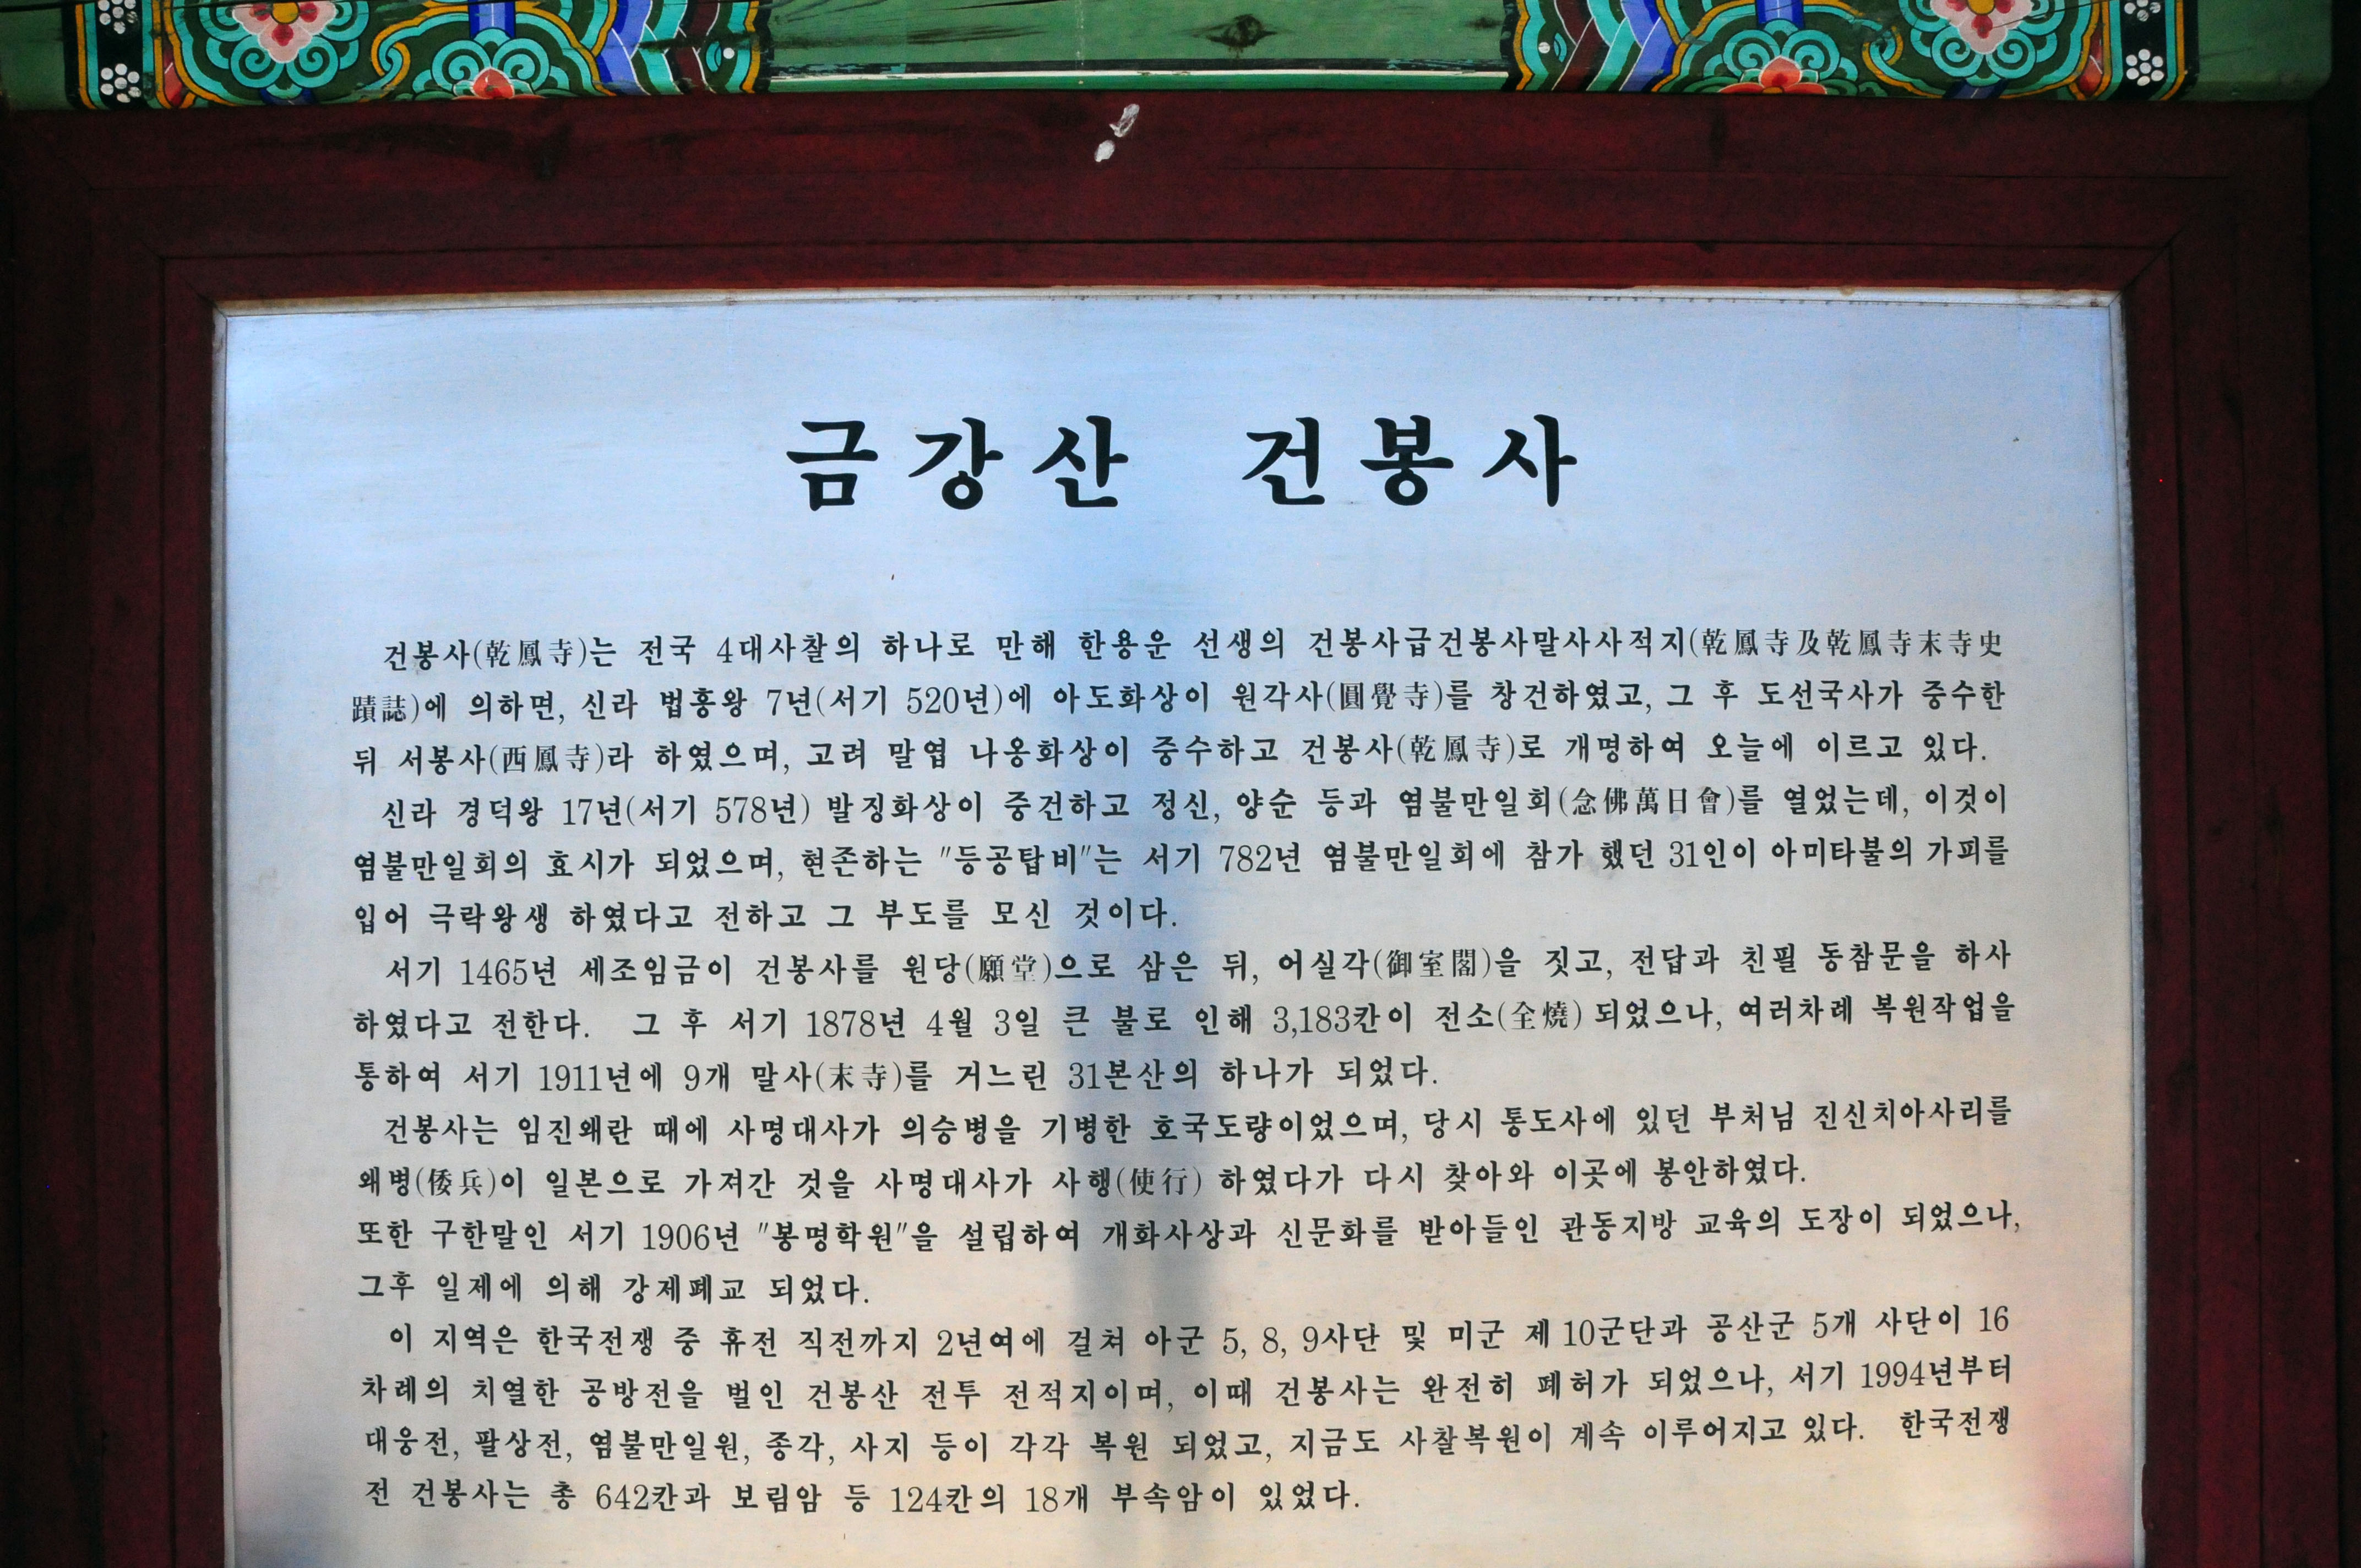 금강산 건봉사
건봉사(乾鳳寺)는 전국 4대사찰의 하나로 만해 한용운 선생의 건봉사급건봉사말사사적지(乾鳳寺及乾鳳寺末寺史
蹟誌)에 의하면, 신라 법흥왕 7년(서기 520년)에 아도화상이 원각사(圓覺寺)를 창건하였고, 그 후 도선국사가 중수한
뒤 서봉사(西鳳寺)라 하였으며, 고려 말엽 나옹화상이 중수하고 건봉사(乾鳳寺)로 개명하여 오늘에 이르고 있다.
신라 경덕왕 17년(서기 578년) 발징화상이 중건하고 정신, 양순 등과 염불만일회(念佛萬日會)를 열었는데, 이것이
염불만일회의 효시가 되었으며, 현존하는 "등공탑비"는 서기 782년 염불만일회에 참가 했던 31인이 아미타불의 가피를
입어 극락왕생 하였다고 전하고 그 부도를 모신 것이다.
서기 1465년 세조임금이 건봉사를 원당(願堂)으로 삼은 뒤, 어실각(御室閣)을 짓고, 전답과 친필 동참문을 하사
하였다고 전한다. 그 후 서기 1878년 4월 3일 큰 불로 인해 3,183칸이 전소(全燒) 되었으나, 여러차례 복원작업을
통하여 서기 1911년에 9개 말사(末寺)를 거느린 31본산의 하나가 되었다.
건봉사는 임진왜란 때에 사명대사가 의승병을 기병한 호국도량이었으며, 당시 통도사에 있던 부처님 진신치아사리를
왜병(倭兵)이 일본으로 가져간 것을 사명대사가 사행(使行) 하였다가 다시 찾아와 이곳에 봉안하였다.
또한 구한말인 서기 1906년 "봉명학원"을 설립하여 개화사상과 신문화를 받아들인 관동지방 교육의 도장이 되었으나,
그후 일제에 의해 강제폐교 되었다.
이 지역은 한국전쟁 중 휴전 직전까지 2년여에 걸쳐 아군 5, 8, 9사단 및 미군 제 10군단과 공산군 5개 사단이 16
차례의 치열한 공방전을 벌인 건봉산 전투 전적지이며, 이때 건봉사는 완전히 폐허가 되었으나, 서기 1994년부터
대웅전, 팔상전, 염불만일원, 종각, 사지 등이 각각 복원 되었고, 지금도 사찰복원이 계속 이루어지고 있다. 한국전쟁
전 건봉사는 총 642칸과 보림암 등 124칸의 18개 부속암이 있었다.